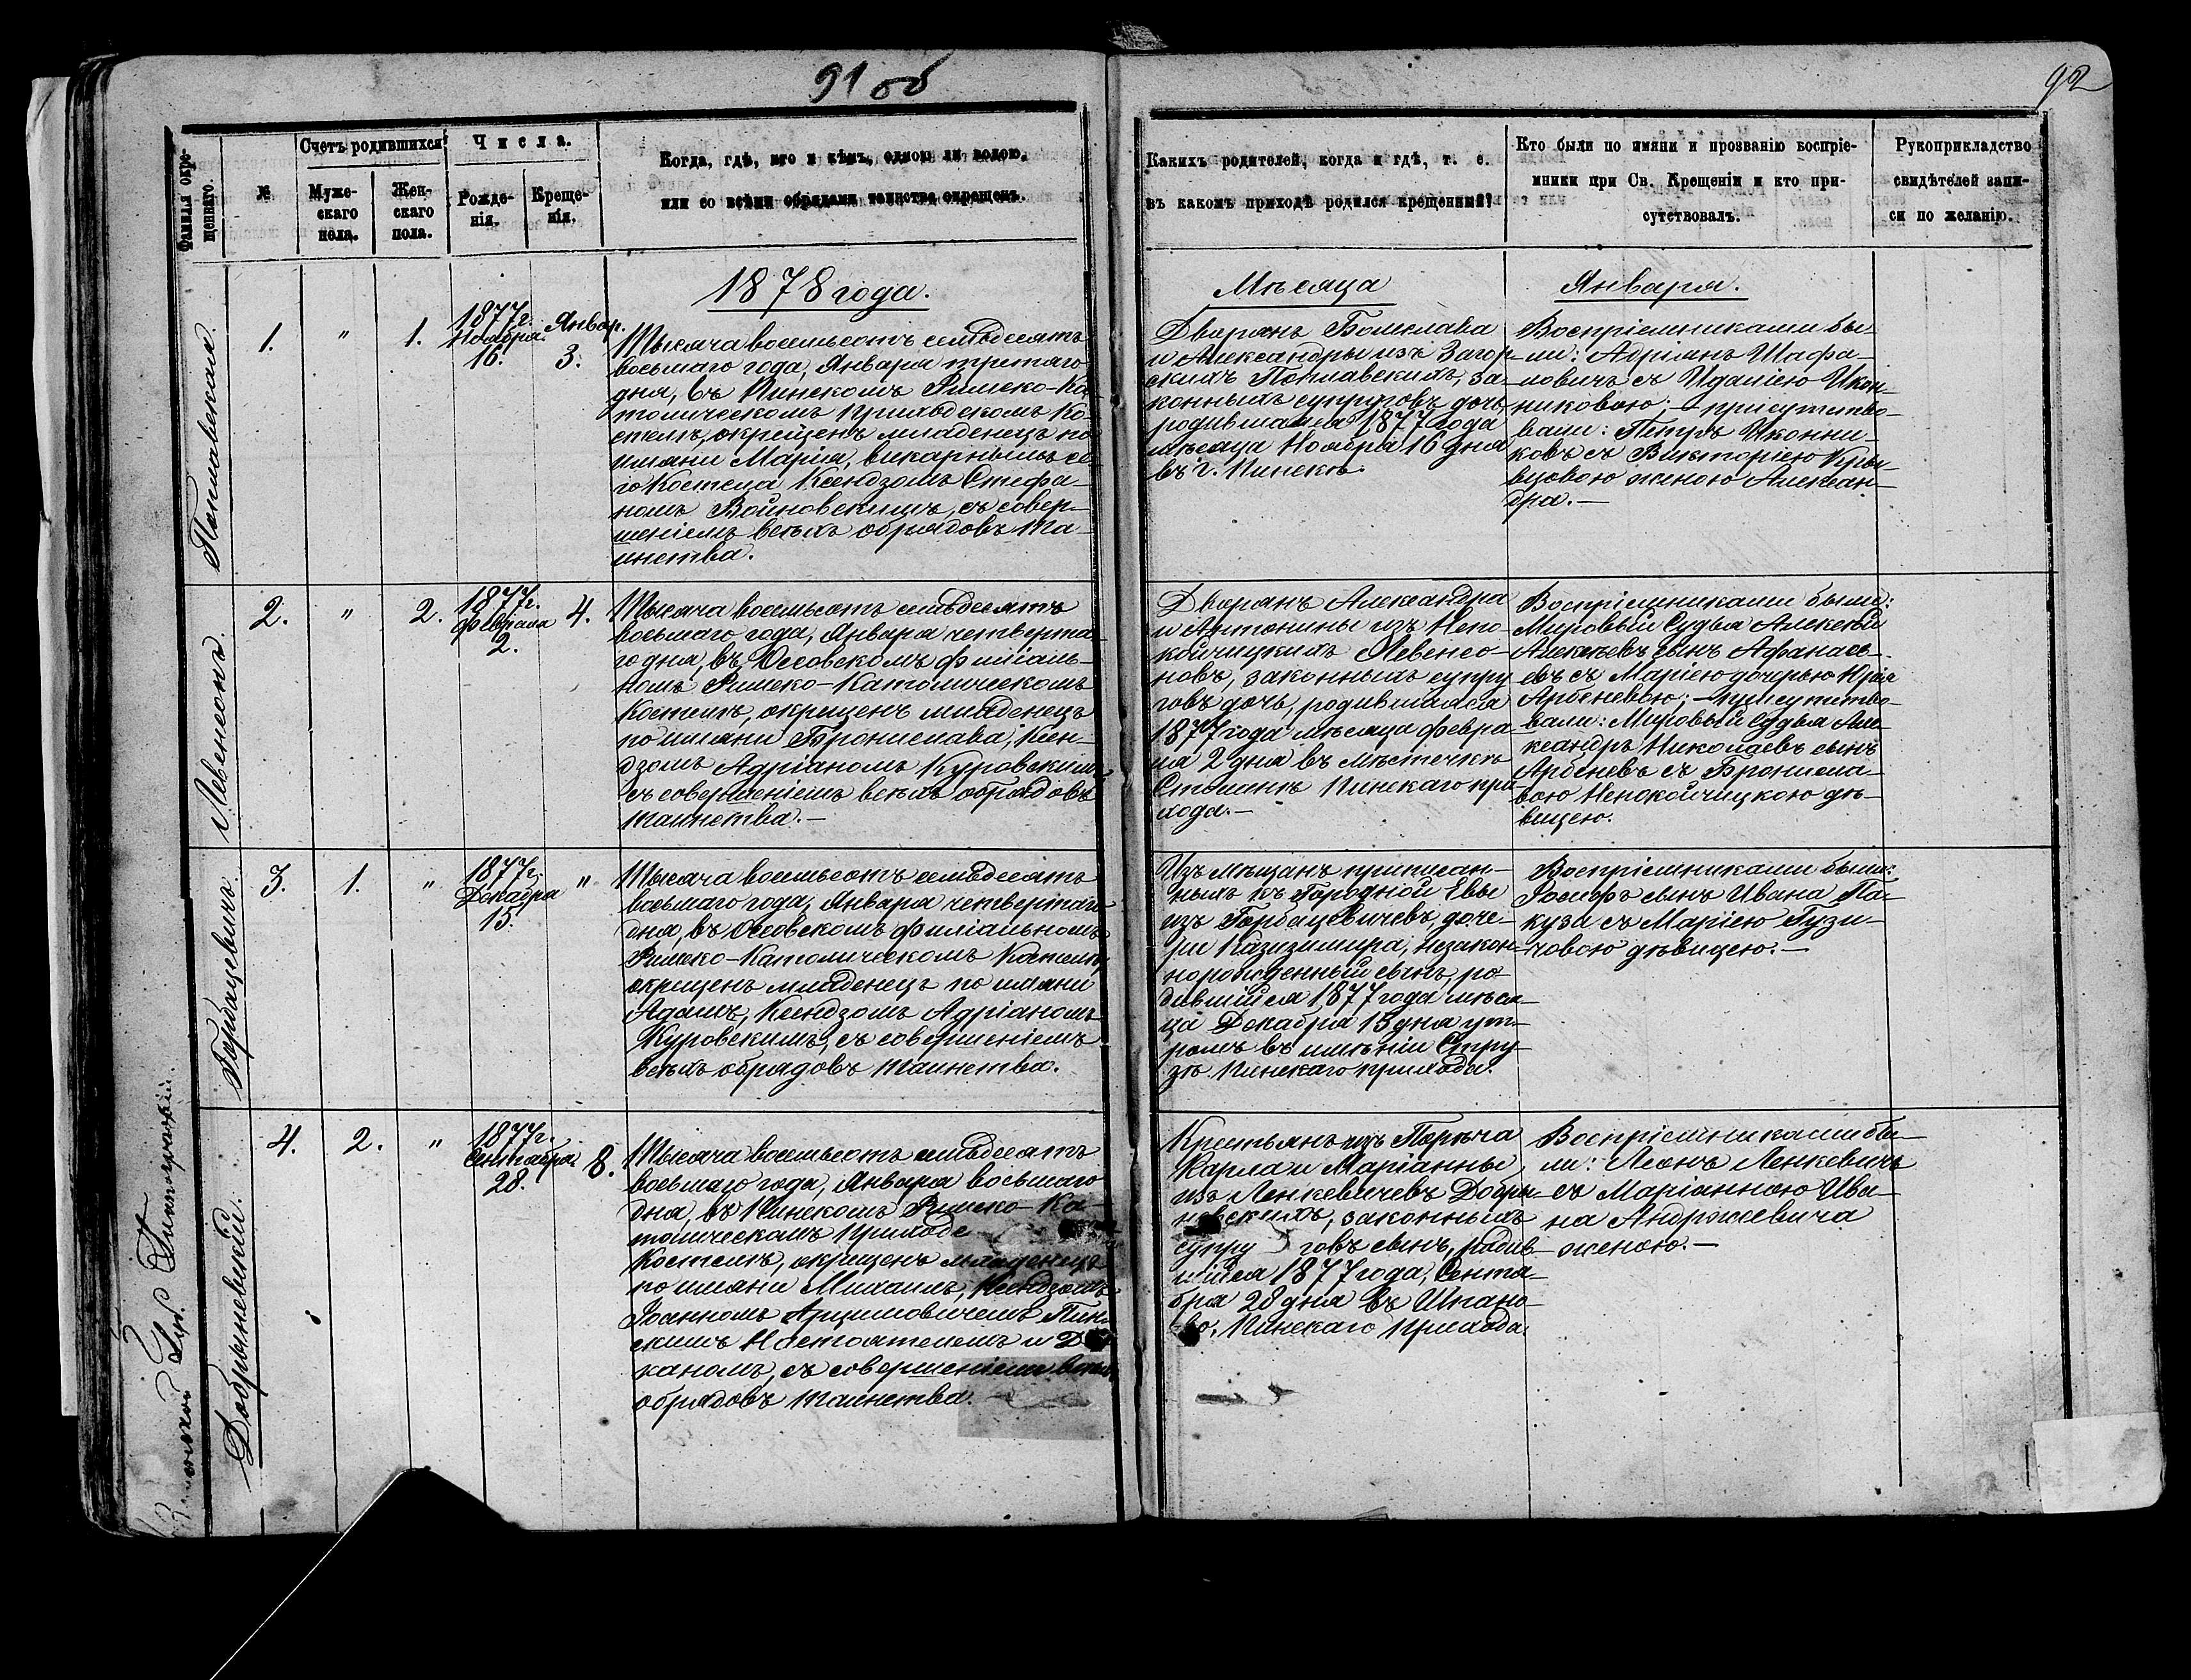 91 об
92
Фамилія окре-
щеннаго.
№
Счетъ родившихся
Муже-
скаго
пола.
Жен-
скаго
пола.
Числа.
Рожде-
нія.
Креще-
нія.
Когда, гдѣ, кто и кѣмъ, одною ли водою,
или со всѣми обрядами таинства окрещенъ.
Какихъ родителей, когда и гдѣ, т. е.
въ какомъ приходѣ родился крещенный?
Кто были по имяни и прозванію воспріе-
мники при Св. Крещеніи и кто при-
сутствовалъ.
Рукоприкладство
свидѣтелей запи-
си по желанію.
1878 года.
Мѣсяца
Января.
Поплавская.
1.
"
1.
1877 г.
Ноября.
16.
Январ.
3.
Тысяча восемьсотъ семьдесятъ
восьмаго года, Января третяго
дня, въ Пинскомъ Римско-Ка-
толическомъ Приходскомъ Ко-
стелѣ, окрещенъ младенецъ по
имяни Марія, викарнымъ се-
го Костела Ксендзомъ Стефа-
номъ Войновскимъ, съ совер-
шеніемъ всѣхъ обрядовъ Та-
инства.
Дворянъ Болеслава
и Александры изъ Загор-
скихъ Поплавскихъ, за-
конныхъ супруговъ дочь,
родившаяся 1877 года
мѣсяца Ноября 16 дня
въ г. Пинскѣ.
Воспріемниками бы-
ли: Адріянъ Шафа-
ловичъ съ Идаліею Икон-
никовою; — присутство-
вали: Петръ Иконни-
ковъ съ Викторіею
женою Алексан-
дра. —
Левенсонъ.
2.
"
2.
1877 г.
Февраля
2.
4.
Тысяча восемьсотъ семьдесятъ
восьмаго года, Января четверта-
го дня, въ Осовскомъ филіаль-
номъ Римско-Католическомъ
Костелѣ, окрещенъ младенецъ
по имяни Бронислава, Ксен-
дзомъ Адріаномъ Куровскимъ
съ совершеніемъ всѣхъ обрядовъ
таинства. —
Дворянъ Александра
и Антонины изъ Непо-
койчицкихъ Левенсо-
новъ, законныхъ супру-
говъ дочь, родившаяся
1877 года мѣсяца Февра-
ля 2 дня въ мѣстечкѣ
Столинѣ Пинскаго при-
хода. —
Воспріемниками были:
Мировый Судья Алексѣй
Алексѣевъ сынъ Афанась-
евъ съ Маріею дочерью Юрія
Арбеневою; — присутство-
вали: Мировый Судья Але-
ксандръ Николаевъ сынъ
Арбеневъ съ Бронисла-
вою Непокойчицкою дѣ-
вицею.
Горбацевичъ.
3.
1.
"
1877 г.
Декабря
15.
"
Тысяча восемьсотъ семьдесятъ
восьмаго года, Января четвертаго
дня, въ Осовскомъ филіальномъ
Римско-Католическомъ Костелѣ,
окрещенъ младенецъ по имяни
Адамъ, Ксендзомъ Адріаномъ
Куровскимъ, съ совершеніемъ
всѣхъ обрядовъ таинства.
Изъ мѣщанъ приписан-
ныхъ къ Городной Евы
изъ Горбацевичевъ, доче-
ри Казизимира, незакон-
норожденный сынъ, ро-
дившійся 1877 года мѣся-
ца Декабря 15 дня ут-
ромъ въ имѣніи Стру-
гѣ Пинскаго прихода.
Воспріемниками были:
Іосифъ сынъ Ивана Па-
куза съ Маріею Гузи-
човою дѣвицею. —
Добрыневскій.
4.
2.
"
1877 г.
Сентября.
28.
8.
Тысяча восемьсотъ семьдесятъ
восьмаго года, Января восьмаго
дня, въ Пинскомъ Римско-Ка-
толическомъ Приходс
Костелѣ, окрещенъ младенецъ
по имяни Михаилъ, Ксендзомъ
Іоанномъ Арцимовичемъ Пин-
скимъ Настоятелемъ и Де-
каномъ, съ совершеніемъ всѣхъ
обрядовъ таинства.
Крестьянъ изъ Порѣча
Карла и Маріанны,
изъ Ленкевичевъ Добры-
невскихъ, законныхъ
супруговъ сынъ, родив-
шійся 1877 года, Сентя-
бря 28 дня въ Шпано-
во, Пинскаго прихода.
Воспріемниками бы-
ли: Леонъ Ленкевичъ
съ Маріанною Ива-
на Андржеевича
женою. —